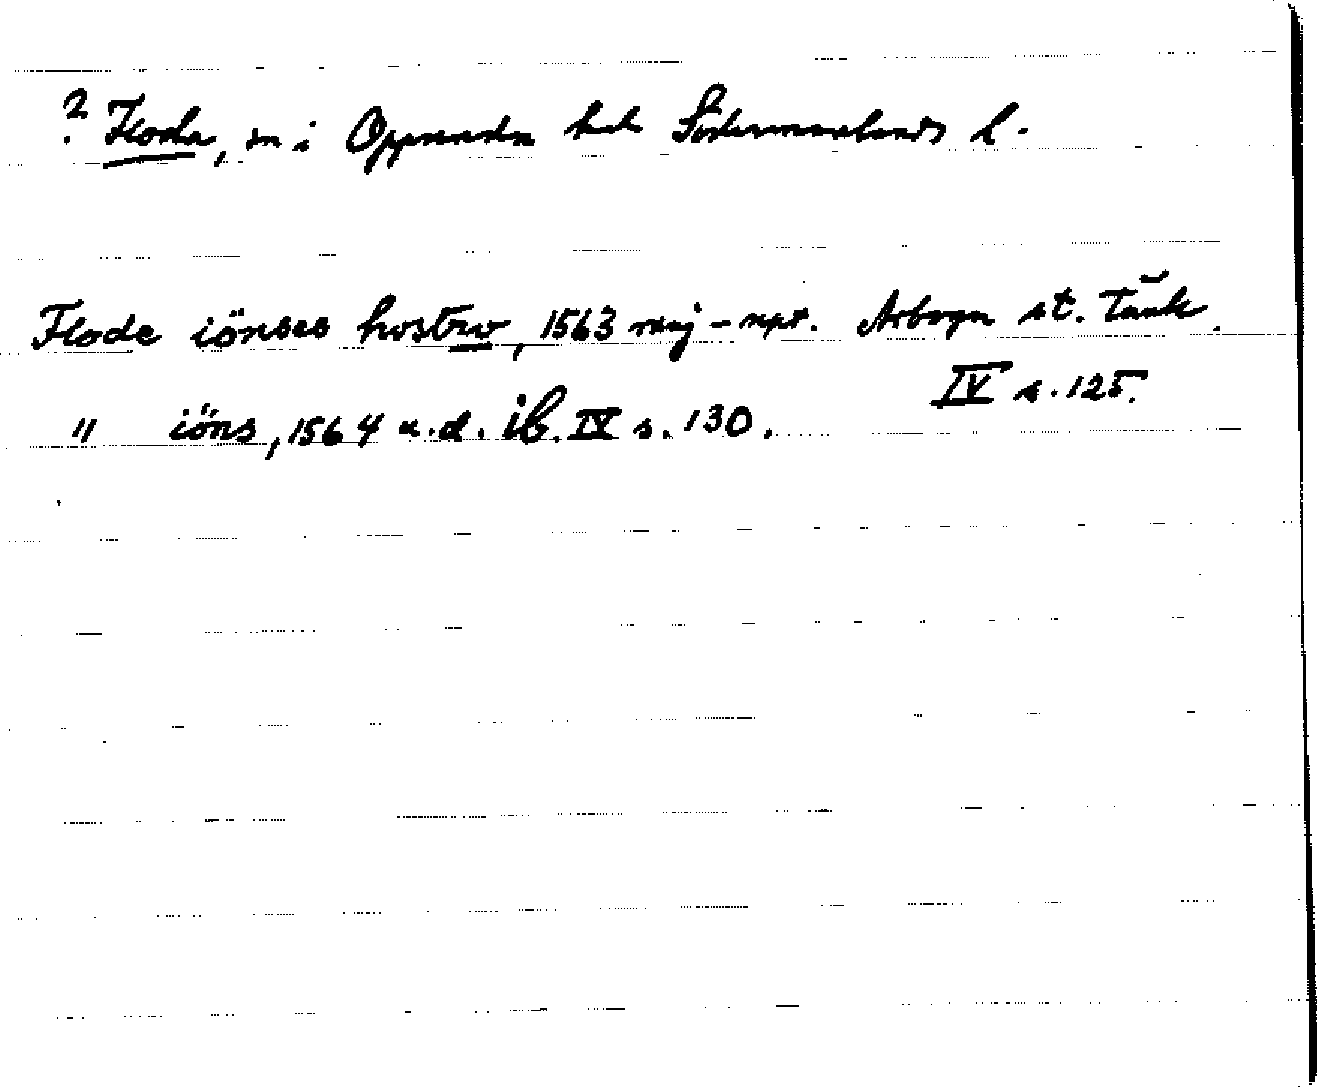 ? Floda, sn i Oppunda hd Södermanlands l.
Flode iönses hostrw, 1563 maj - sept. Arboga st. Tänk.
IV s. 125.
" iöns, 1564 u.d. ib. IV s. 130.